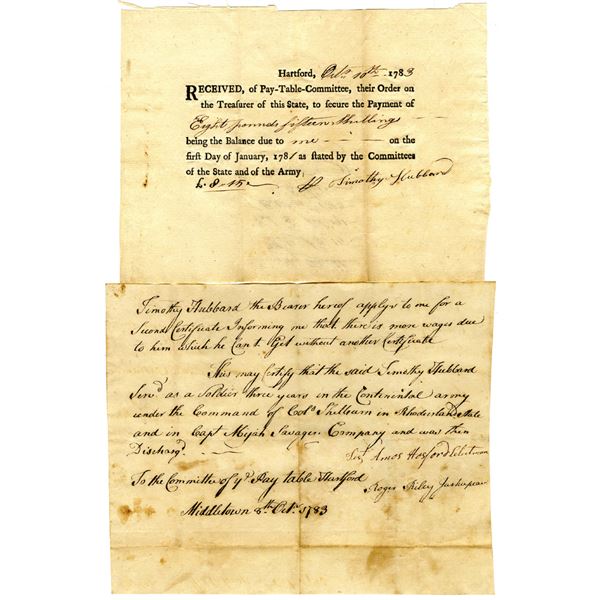 Hartford, Octr. 10th. 1783
RECEIVED, of Pay-Table-Committee, their Order on
the Treasurer of this State, to secure the Payment of
Eight pounds fifteen Shillings
being the Balance due to me on the
first Day of January, 1781 as stated by the Committees
of the State and of the Army
£. 8-15- Timothy Hubbard
Timothy Hubbard the Bearer hereof applys to me for a
Second Certificate Informing me that there is more wages due
to him which he Cant Get without another Certificate
This may Certify that the said Timothy Hubbard
Servd. as a Soldier three years in the Continental army
under the Command of Colo. in Rhodeisland State
and in Capt Mijah Savages Company and was then
Dischargd.
Amos Hosford Selectman
To the Committee of ye. Pay table Hartford
Roger Riley Justispeas
Middletown 8th. Octr. 1783